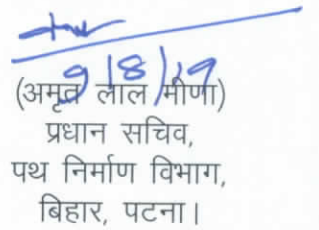 9/8/19
(अमृत लाल मीणा)
प्रधान सचिव,
पथ निर्माण विभाग,
बिहार, पटना।